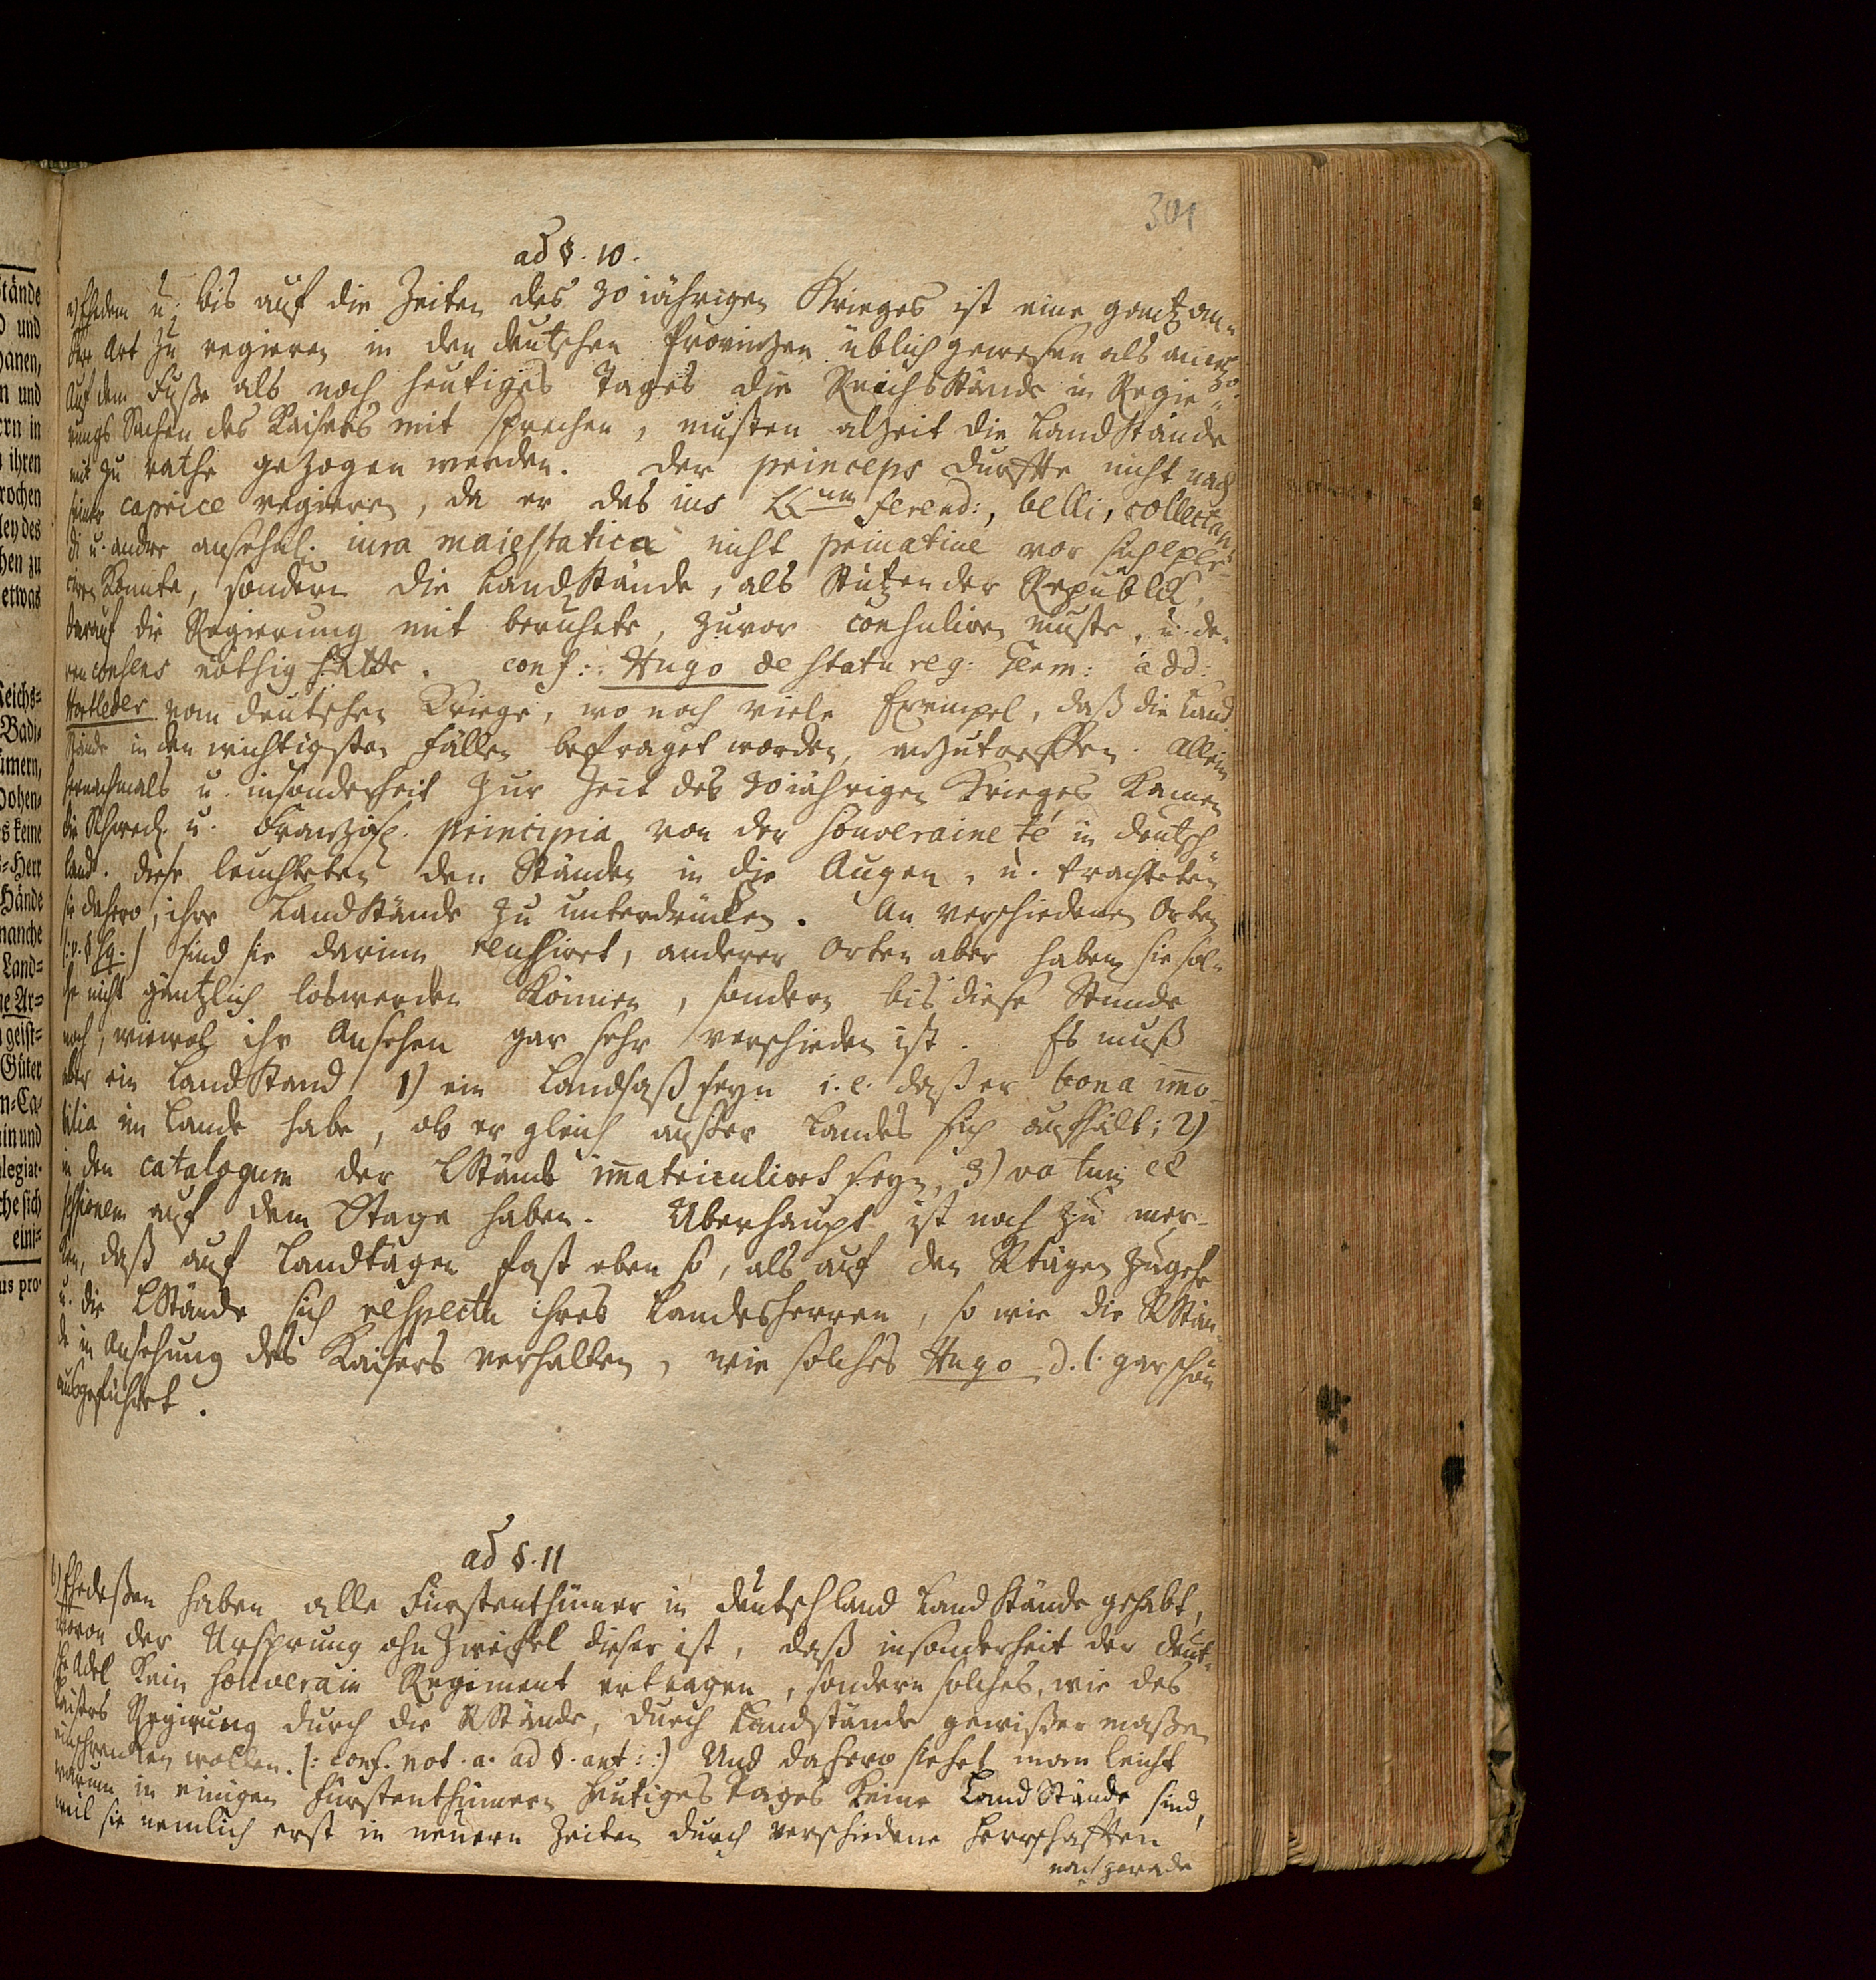 301
ad §. 10.
a) Ehedem u. bis auf die Zeiten des 30 iährigen Krieges ist eine gantz an-
dere Art zu regieren in den deutschen Provinzen üblich gewesen als anietzo
Auf dem Fuße als noch heutiges Tages die ReichsStände in Regie-
rungs Sachen des Kaisers mit sprechen, musten alzeit die LandStände
mit zu rathe gezogen werden. Der princeps durffte nicht nach
seiner caprice regieren, da er das ius LLum ferend:, belli, collectan-
di u. andre ansehnl. iura maiestatica nicht privative vor sich exer-
ciren konnte, sondern die LandStände, als Stützen der Republick,
darauf die Regierung mit beruhete, zuvor consuliren muste, u. de-
ren consens nöthig hatte. conf: Hugo de statu reg: Germ: add:
Hortleder vom deutschen Kriege, wo noch viele Exempel, daß die Land
Stände in den wichtigsten Fällen befraget worden, anzutreffen. Allein
hernachmals u. insonderheit zur Zeit des 30 iährigen Krieges kamen
die Schwed. u. Französ. principia von der souveraineté in Deutsch-
land. Diese leuchteten den Ständen in die Augen, u. trachteten
sie dahero, ihre LandStände zu unterdrücken. An verschiedenen Orten
(:v. § sq.) sind sie darinn reussiret, anderer Orten aber haben sie sol-
che nicht gäntzlich loswerden können, sondern bis diese Stunde
noch, wiewol ihr Ansehen gar sehr verschieden ist. Es muß
aber ein LandStand 1) ein Landsaß seyn i.e. daß er bona immo-
bilia im Lande habe, ob er gleich ausser Landes sich aufhält; 2)
in den catalogum der LStände immatriculiret seyn, 3) votum et
sessionem auf dem LTage haben. Überhaupt ist noch zu mer-
ken, daß auf Landtägen fast eben so, als auf den RTägen zugehe
u. die LStände sich respectu ihres Landesherren, so wie die RStän-
de in Ansehung des Kaisers verhalten, wie solches Hugo d.l. gar schön
ausgeführet.
ad §. 11
b) Ehedeßen haben alle Fürstenthümer in Deutschland LandStände gehabt,
wovon der Ursprung ohn Zweifel dieser ist, daß insonderheit der deut-
sche Adel kein souverain Regiment ertragen, sondern solches, wie des
Kaisers Regirung durch die RStände, durch Landstände gewißer maßen
einschrencken wollen. (: conf. not. a. ad §. ant: :) Und dahero siehet man leicht
warum in einigen Fürstenthümern heutiges Tages keine LandStände sind,
weil sie nemlich erst in neuern Zeiten durch verschiedene Herrschafften
nach gerade
Stände
und
und
ern in
ihren
rochen
ley des
hen zu
etwas
Reichs-
Badi-
ümern,
Hohen-
keine
Herr
Hände
manche
Land-
geist-
Güter
in und
legiat-
che sich
eini-
us pro-